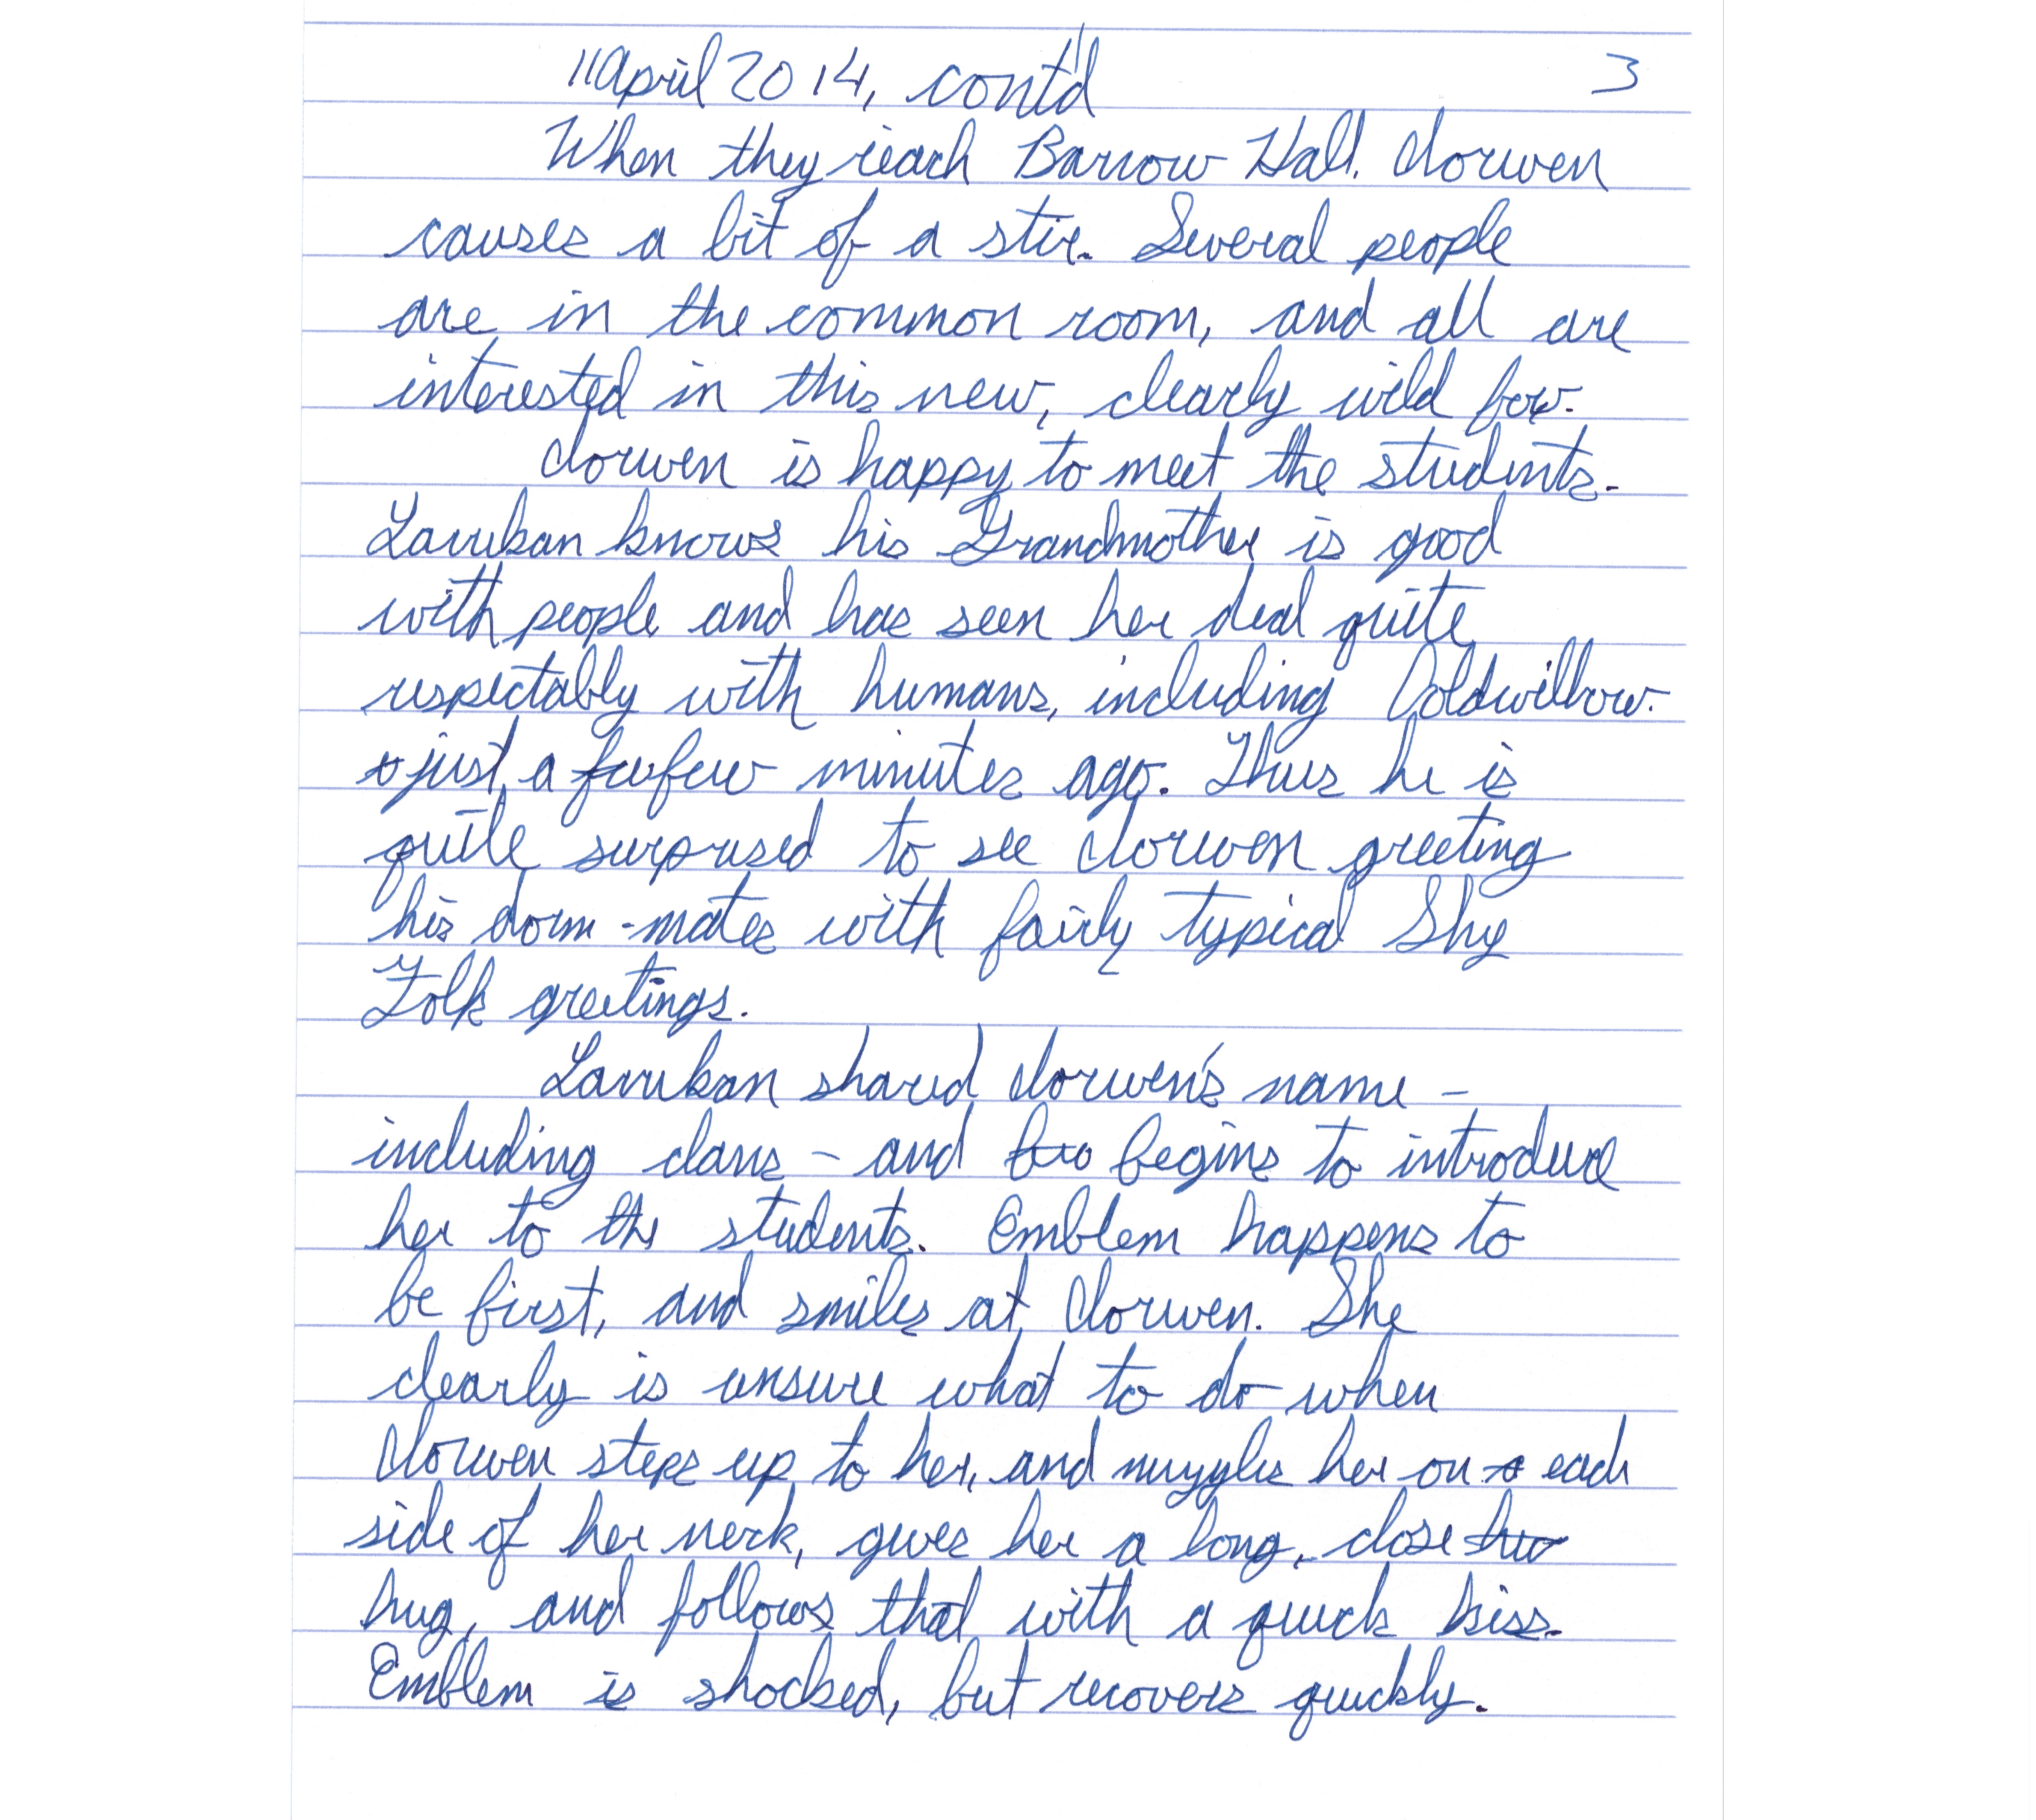 11 April 2014, cont'd 3
When they reach Barrow Hall, Clorwen
causes a bit of a stir. Several people
are in the common room, and all are
interested in this new, clearly wild fox.
Clorwen is happy to meet the students.
Lavukan knows his Grandmother is good
with people and has seen her deal quite
respectably with humans, including Coldwillow
just a few minutes ago. Thus he is
quite surprised to see Clorwen greeting
his dorm-mates with fairly typical Shy
Folk greetings.
Lavukan shared Clorwen's name -
including clans - and begins to introduce
her to the students. Emblem happens to
be first, and smiles at Clorwen. She
clearly is unsure what to do when
Clorwen steps up to her, and nuzzles her on each
side of her neck, gives her a long, close
hug, and follows that with a quick kiss.
Emblem is shocked, but recovers quickly.